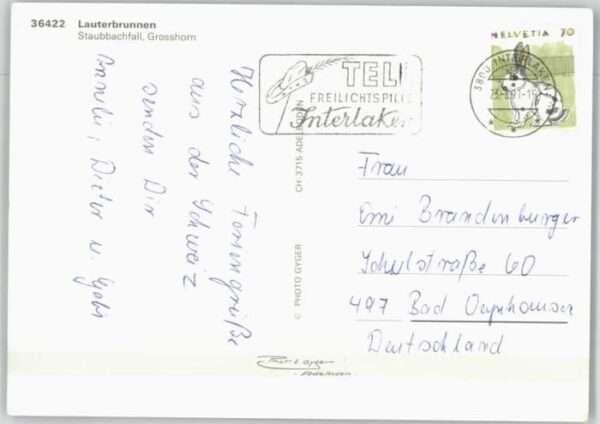 36422 Lauterbrunnen
Staubbachfall, Grosshorn
HELVETIA 70
TELL
FREILICHTSPIELE
Interlaken
3800 INTERLAKEN
Herzliche Feriengrüße
aus der Schweiz
senden Dir
Dieter u. Gabi
CH-3715 ADELBODEN
© PHOTO GYGER
Frau
Emi Brandenburger
Schulstraße 60
497 Bad Oeynhausen
Deutschland
Photo Gyger
Adelboden